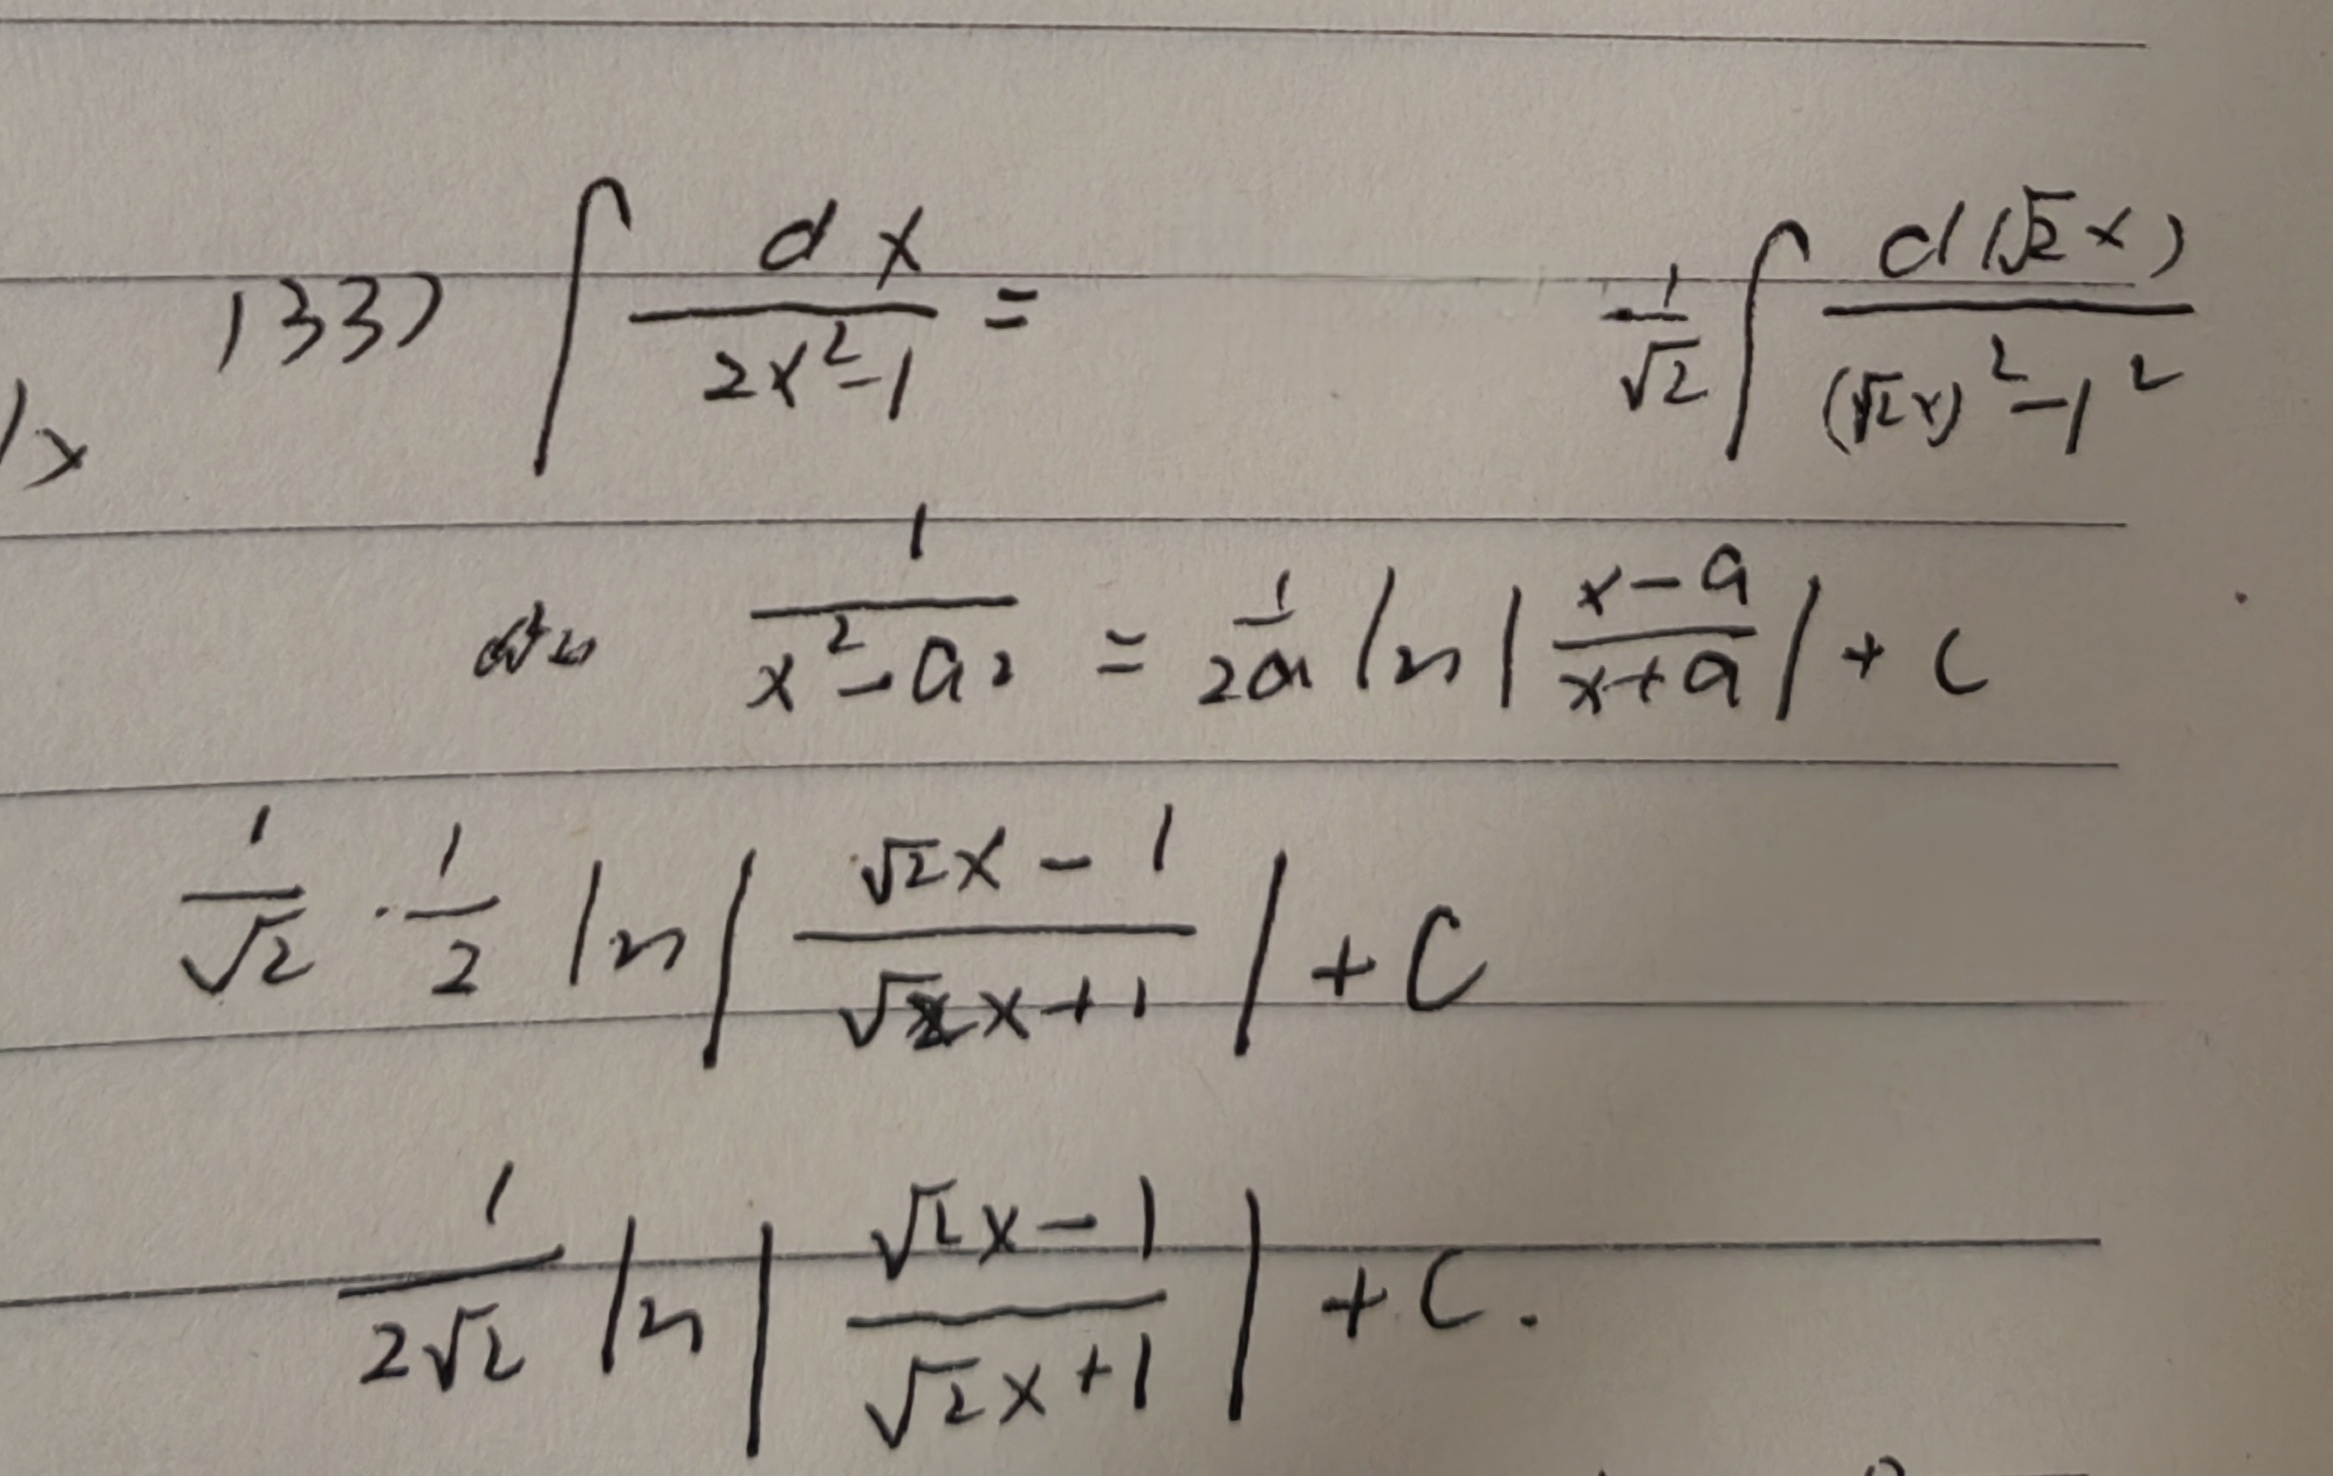 (33) ∫ dx / (2x² - 1) = 1/√2 ∫ d(√2x) / ((√2x)² - 1²)
1 / (x² - a²) = 1/2a ln | (x - a) / (x + a) | + C
1/√2 · 1/2 ln | (√2x - 1) / (√2x + 1) | + C
1 / (2√2) ln | (√2x - 1) / (√2x + 1) | + C.